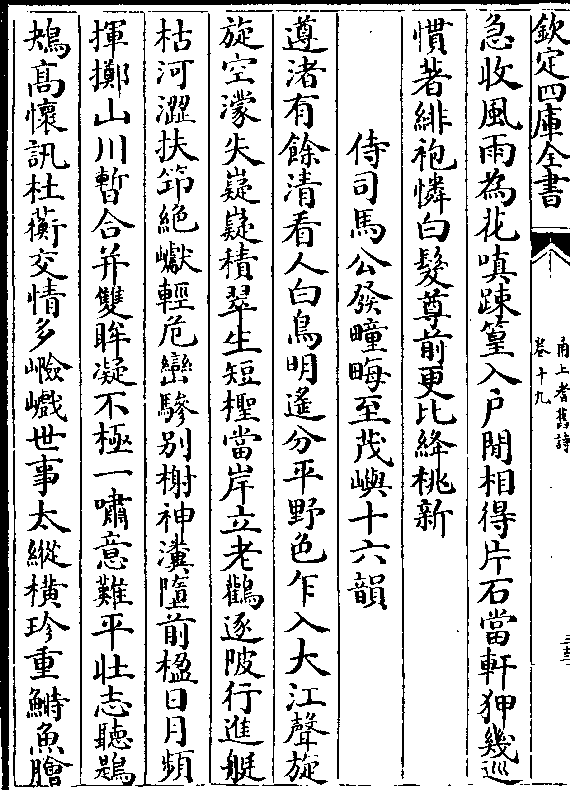 欽定四庫全書
甬上耆舊詩
卷十九
急收風雨為花嗔踈篁入户閒相得片石當軒狎幾巡
慣著緋袍憐白髮尊前更比絳桃新
侍司馬公發疃晦至茂嶼十六韻
遵渚有餘清看人白鳥明遙分平野色乍入大江聲旋
旋空濛失嶷嶷積翠生短檉當岸立老鸛逐陂行進艇
枯河澀扶笻絶巘輕危巒驂别榭神瀵墮前楹日月頻
揮擲山川暫合并雙眸凝不極一嘯意難平壯志聽鶗
鴂高懷訊杜蘅交情多嶮巇世事太縱横珍重鰣魚膾